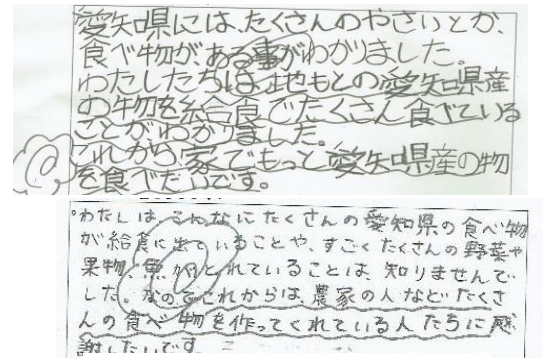 愛知県には、たくさんのやさいとか、
食べ物がある事がわかりました。
わたしたちは、地もとの愛知県産
の物を給食でたくさん食べている
ことがわかりました。
これから家でもっと愛知県産の物
を食べたいです。
わたしは、こんなにたくさんの愛知県の食べ物
が給食に出ていることや、すごくたくさんの野菜や
果物、魚がとれていることは、知りませんで
した。なのでこれからは、農家の人などたくさ
んの食べ物を作ってくれている人たちに感
謝したいです。